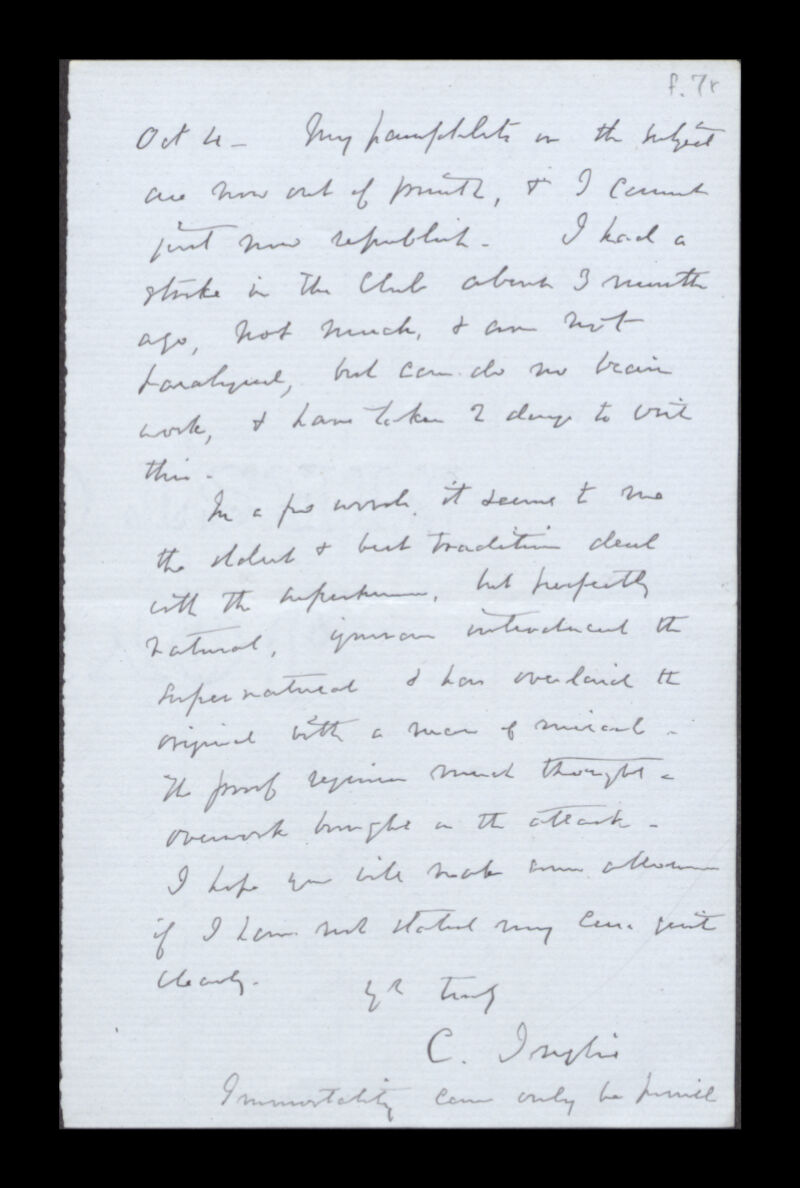 f. 7r
Oct 4 - My pamphlets on the subject
are now out of print, & I cannot
just now republish - I had a
stroke in the Club about 3 months
ago, not much, & am not
paralysed, but can do no brain
work, & have taken 2 days to write
this -
In a few words, it seems to me
the oldest & best tradition deal
with the superhuman, but perfectly
natural, introduced the
supernatural & has overlaid the
original with a mass of miracle -
The proof requires much thought -
overwork brought on the attack -
I hope you will make some allowance
if I have not stated my case quite
clearly -
yrs truly
C.
Immortality can only be